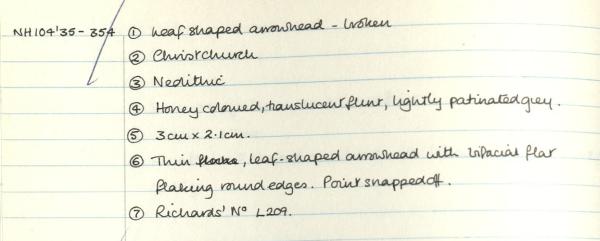 NH104'35-354 ① Leaf shaped arrowhead - broken
② Christchurch
③ Neolithic
④ Honey coloured, translucent flint, lightly patinated grey.
⑤ 3cm x 2.1cm.
⑥ Thin, leaf-shaped arrowhead with bifacial flat
flaking round edges. Point snapped off.
⑦ Richards' Nº L209.